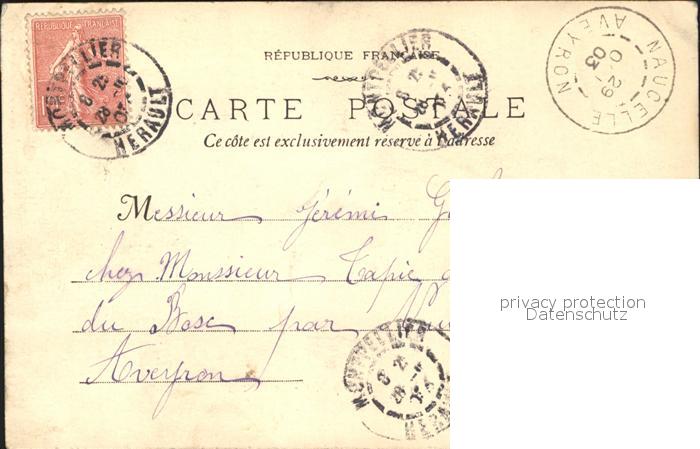 RÉPUBLIQUE FRANÇAISE
MONTPELLIER
HERAULT
RÉPUBLIQUE FRANÇAISE
MONTPELLIER
HERAULT
NAUCELLE
AVEYRON
29
03
CARTE POSTALE
Ce côté est exclusivement réservé à l'adresse
Messieur Jérémi
chez Monssieur Tapie
du Bosc par
Aveyron
MONTPELLIER
HERAULT
privacy protection
Datenschutz